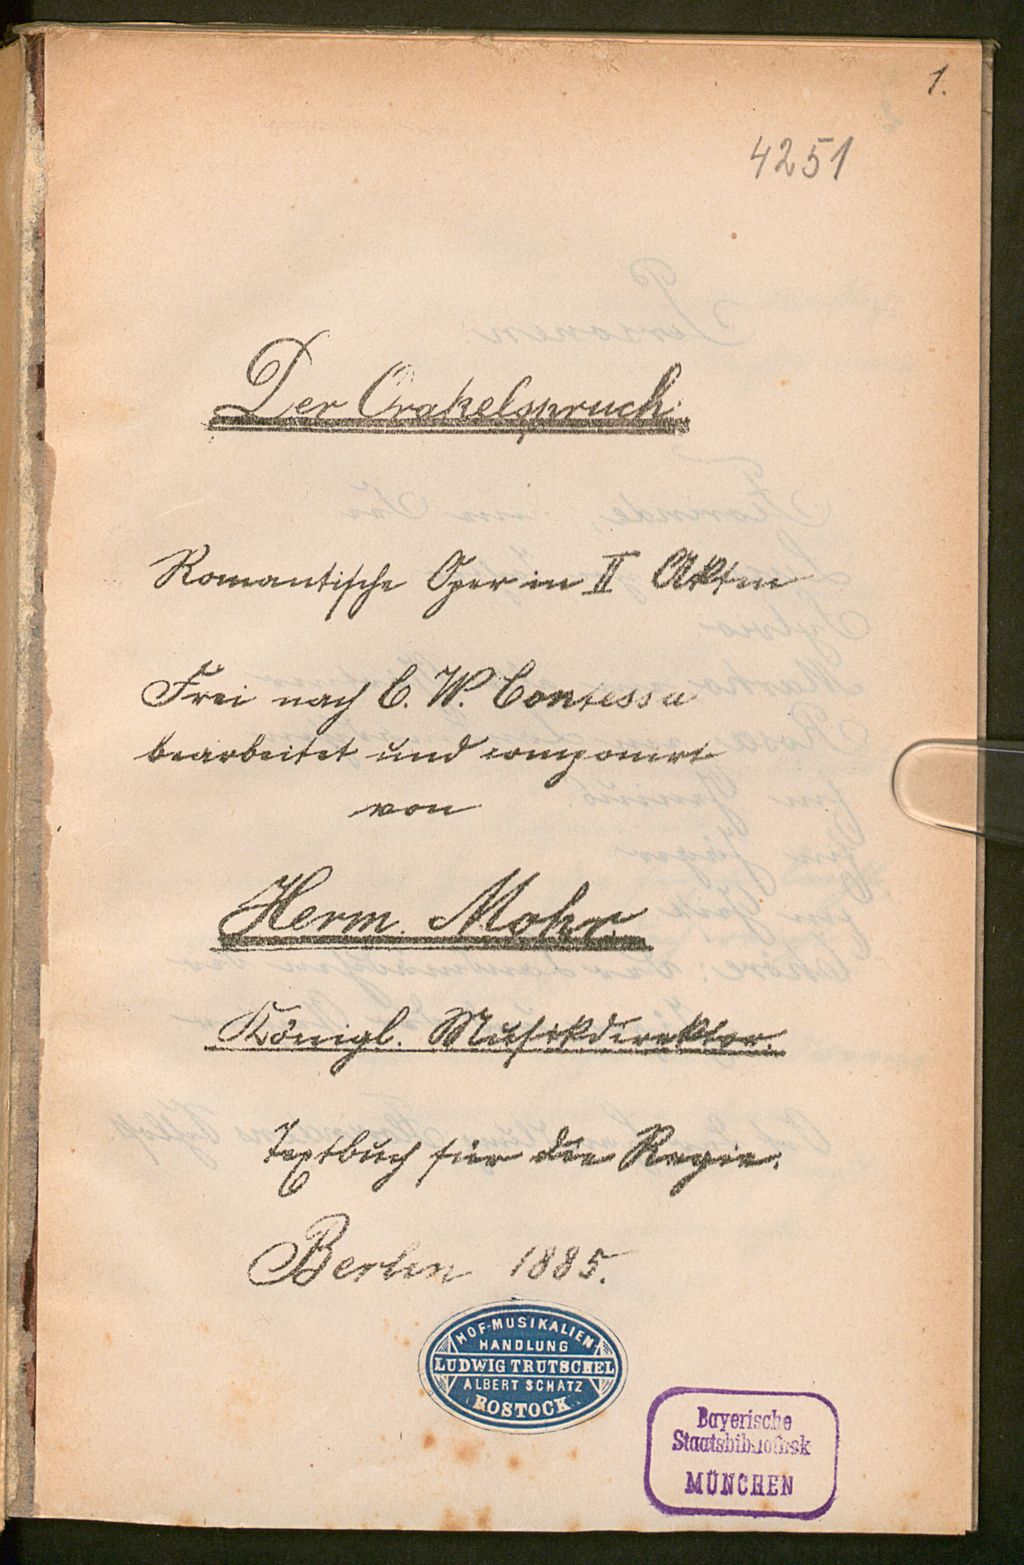 1.
4251
Der Orakelspruch.
Romantische Oper in II Akten
Frei nach C. W. Contessa
bearbeitet und componirt
von
Herm. Mohr
Königl. Musikdirektor.
Textbuch für die Regie.
Berlin 1885.
HOF-MUSIKALIEN
HANDLUNG
LUDWIG TRUTSCHEL
ALBERT SCHATZ
ROSTOCK
Bayerische
Staatsbibliothek
MÜNCHEN